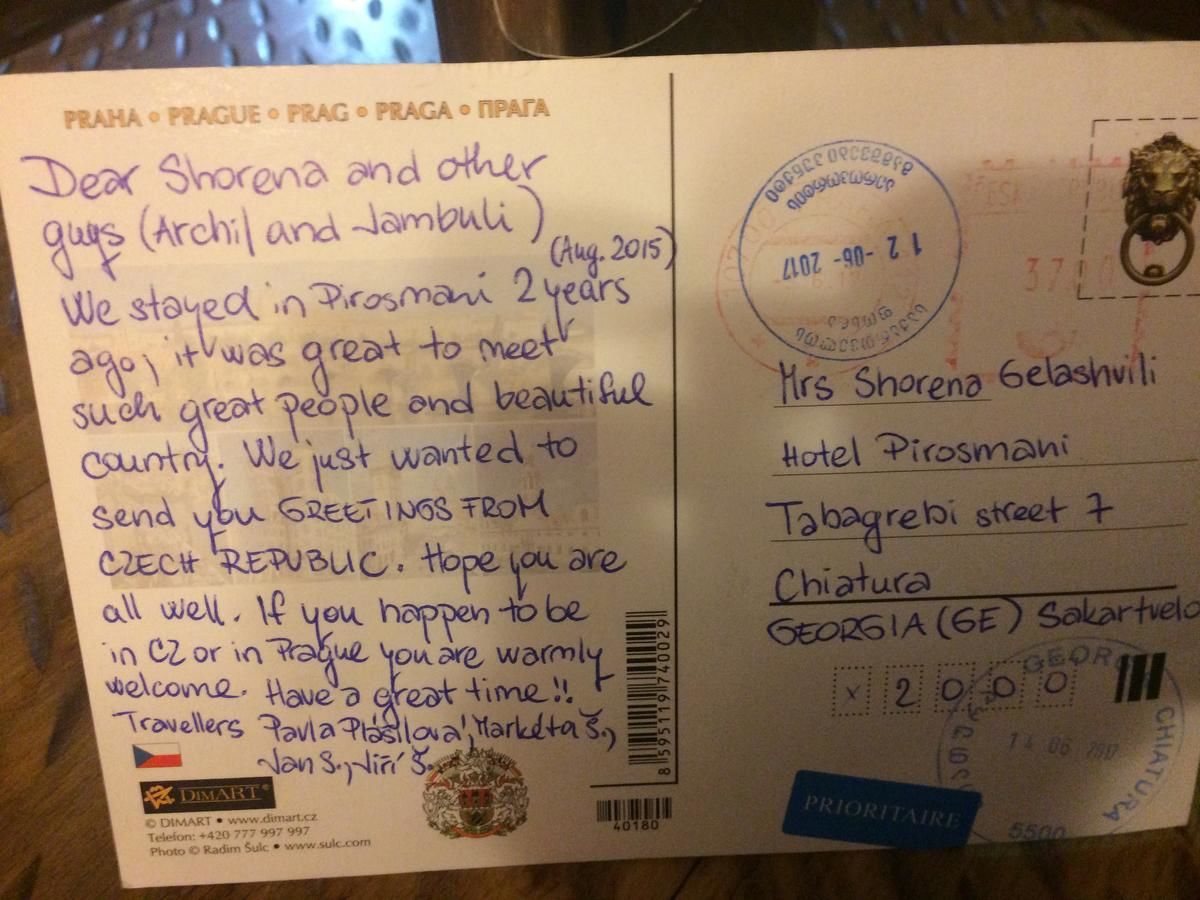 PRAHA • PRAGUE • PRAG • PRAGA • ПРАГА
Dear Shorena and other
guys (Archil and Jambuli)
(Aug. 2015)
We stayed in Pirosmani 2 years
ago, it was great to meet
such great people and beautiful
country. We just wanted to
send you GREETINGS FROM
CZECH REPUBLIC. Hope you are
all well. If you happen to be
in CZ or in Prague you are warmly
welcome. Have a great time!!
Travellers Pavla Plášilová, Markéta Š.,
Jan S., Jiří Š.
DIMART
© DIMART • www.dimart.cz
Telefon: +420 777 997 997
Photo © Radim Šulc • www.sulc.com
8 595119 740029
40180
12-06-2017
Mrs Shorena Gelashvili
Hotel Pirosmani
Tabagrebi street 7
Chiatura
GEORGIA (GE) Sakartvelo
x 2 0 0 0
GEOR
CHIATURA
14 06 2017
5500
PRIORITAIRE